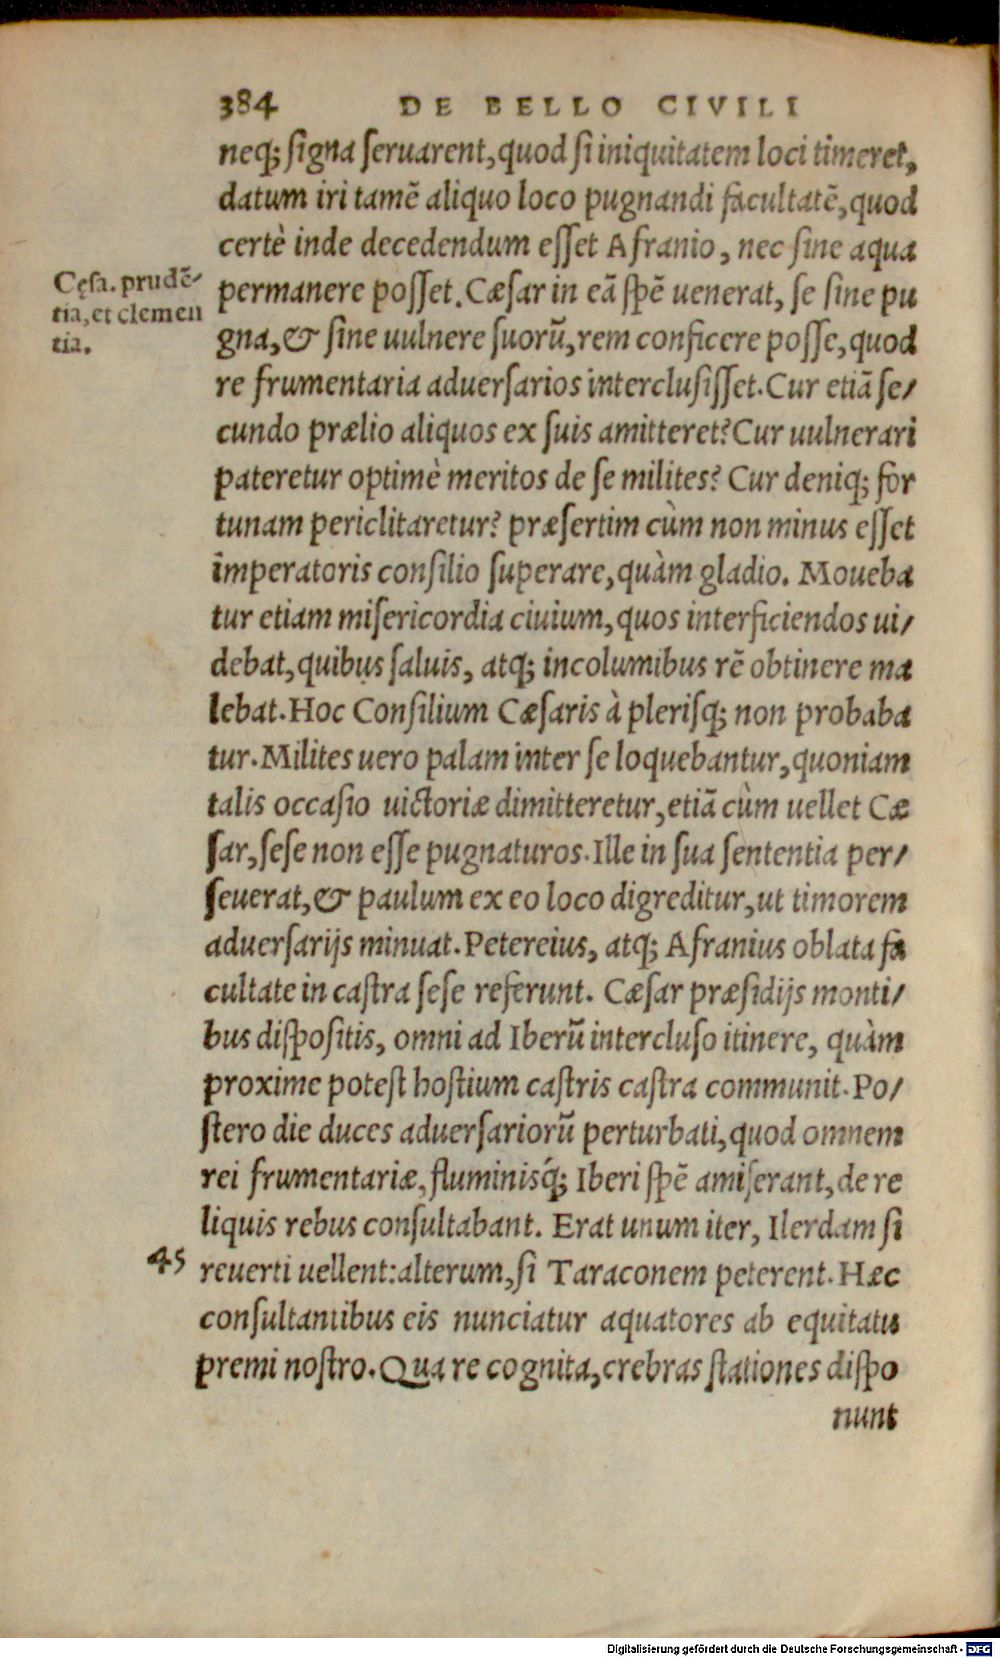 384 DE BELLO CIVILI
neq; signa seruarent, quod si iniquitatem loci timeret,
datum iri tamē aliquo loco pugnandi facultatē, quod
certè inde decedendum esset Afranio, nec sine aqua
Cęsa. prudē/
tia, et clemen
tia.
permanere posset. Cæsar in eā spē uenerat, se sine pu
gna, & sine uulnere suorū, rem conficere posse, quod
re frumentaria aduersarios interclusisset. Cur etiā se/
cundo prælio aliquos ex suis amitteret? Cur uulnerari
pateretur optimè meritos de se milites? Cur deniq; for
tunam periclitaretur? præsertim cùm non minus esset
imperatoris consilio superare, quàm gladio. Moueba
tur etiam misericordia ciuium, quos interficiendos ui/
debat, quibus saluis, atq; incolumibus rē obtinere ma
lebat. Hoc Consilium Cæsaris à plerisq; non probaba
tur. Milites uero palam inter se loquebantur, quoniam
talis occasio uictoriæ dimitteretur, etiā cùm uellet Cæ
sar, sese non esse pugnaturos. Ille in sua sententia per/
seuerat, & paulum ex eo loco digreditur, ut timorem
aduersarijs minuat. Petereius, atq; Afranius oblata fa
cultate in castra sese referunt. Cæsar præsidijs monti/
bus dispositis, omni ad Iberū intercluso itinere, quàm
proxime potest hostium castris castra communit. Po/
stero die duces aduersariorū perturbati, quod omnem
rei frumentariæ, fluminisq́; Iberi spē amiserant, de re
liquis rebus consultabant. Erat unum iter, Ilerdam si
45 reuerti uellent: alterum, si Taraconem peterent. Hæc
consultantibus eis nunciatur aquatores ab equitatu
premi nostro. Qua re cognita, crebras stationes dispo
nunt
Digitalisierung gefördert durch die Deutsche Forschungsgemeinschaft - DFG